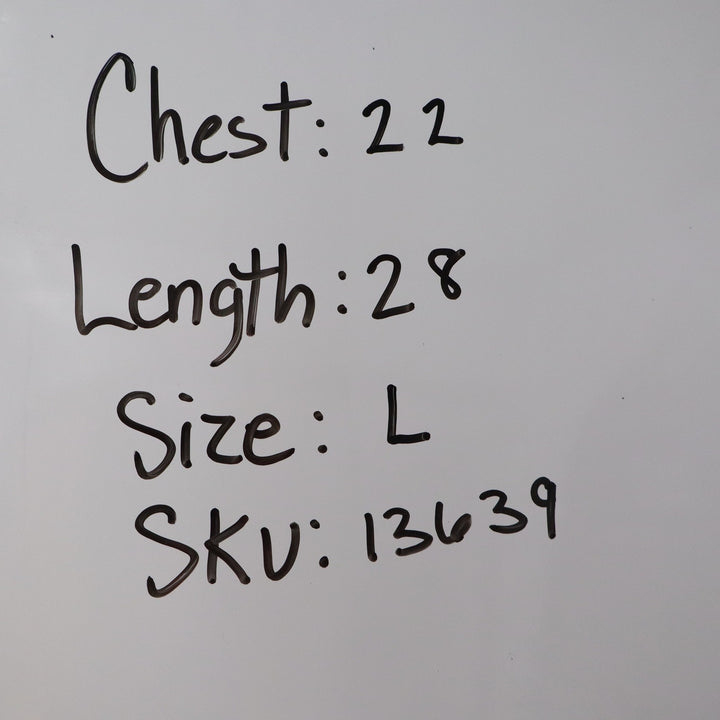 Chest: 22
Length: 28
Size: L
SKU: 13639